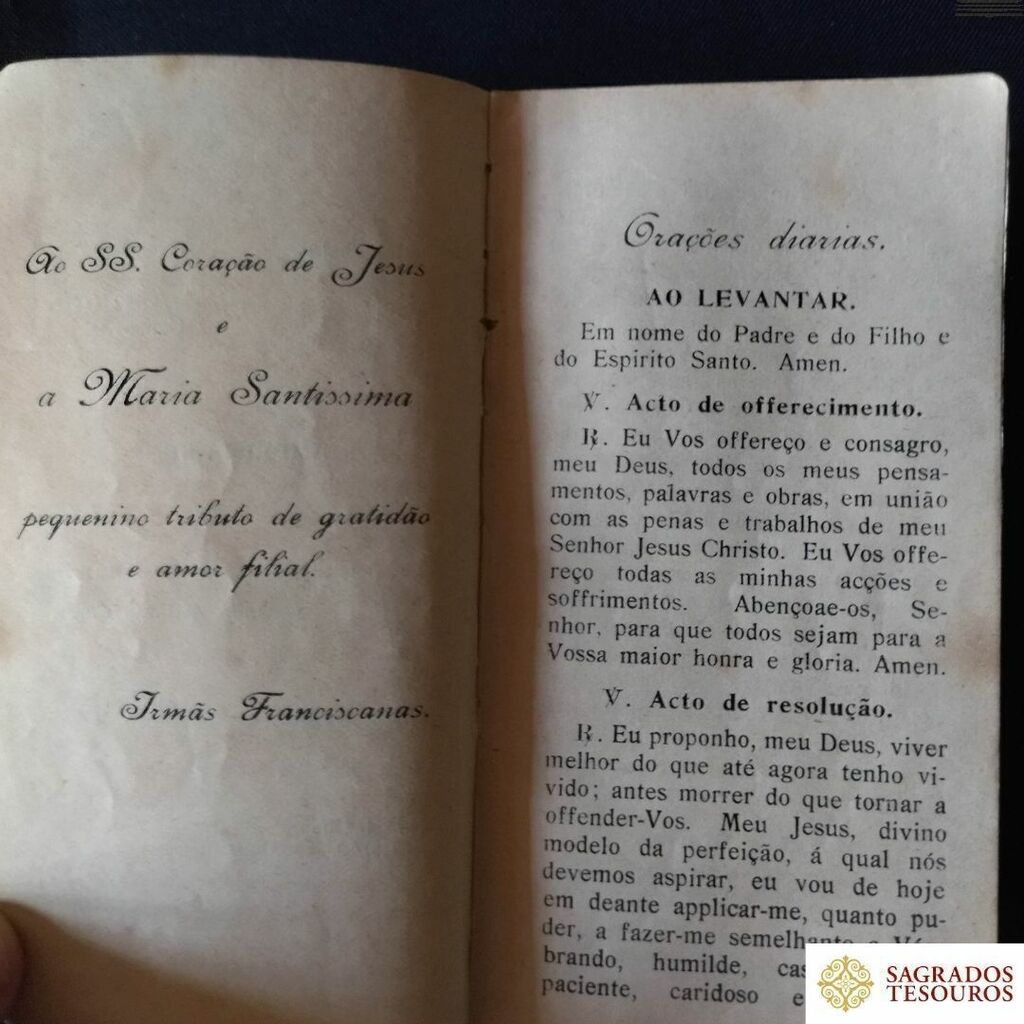 Ao SS. Coração de Jesus
e
a Maria Santissima
pequenino tributo de gratidão
e amor filial.
Irmãs Franciscanas.
Orações diarias.
AO LEVANTAR.
Em nome do Padre e do Filho e
do Espirito Santo. Amen.
℣. Acto de offerecimento.
℟. Eu Vos offereço e consagro,
meu Deus, todos os meus pensa-
mentos, palavras e obras, em união
com as penas e trabalhos de meu
Senhor Jesus Christo. Eu Vos offe-
reço todas as minhas acções e
soffrimentos. Abençoae-os, Se-
nhor, para que todos sejam para a
Vossa maior honra e gloria. Amen.
℣. Acto de resolução.
℟. Eu proponho, meu Deus, viver
melhor do que até agora tenho vi-
vido; antes morrer do que tornar a
offender-Vos. Meu Jesus, divino
modelo da perfeição, á qual nós
devemos aspirar, eu vou de hoje
em deante applicar-me, quanto pu-
der, a fazer-me semelhante a
brando, humilde,
paciente, caridoso e
SAGRADOS
TESOUROS